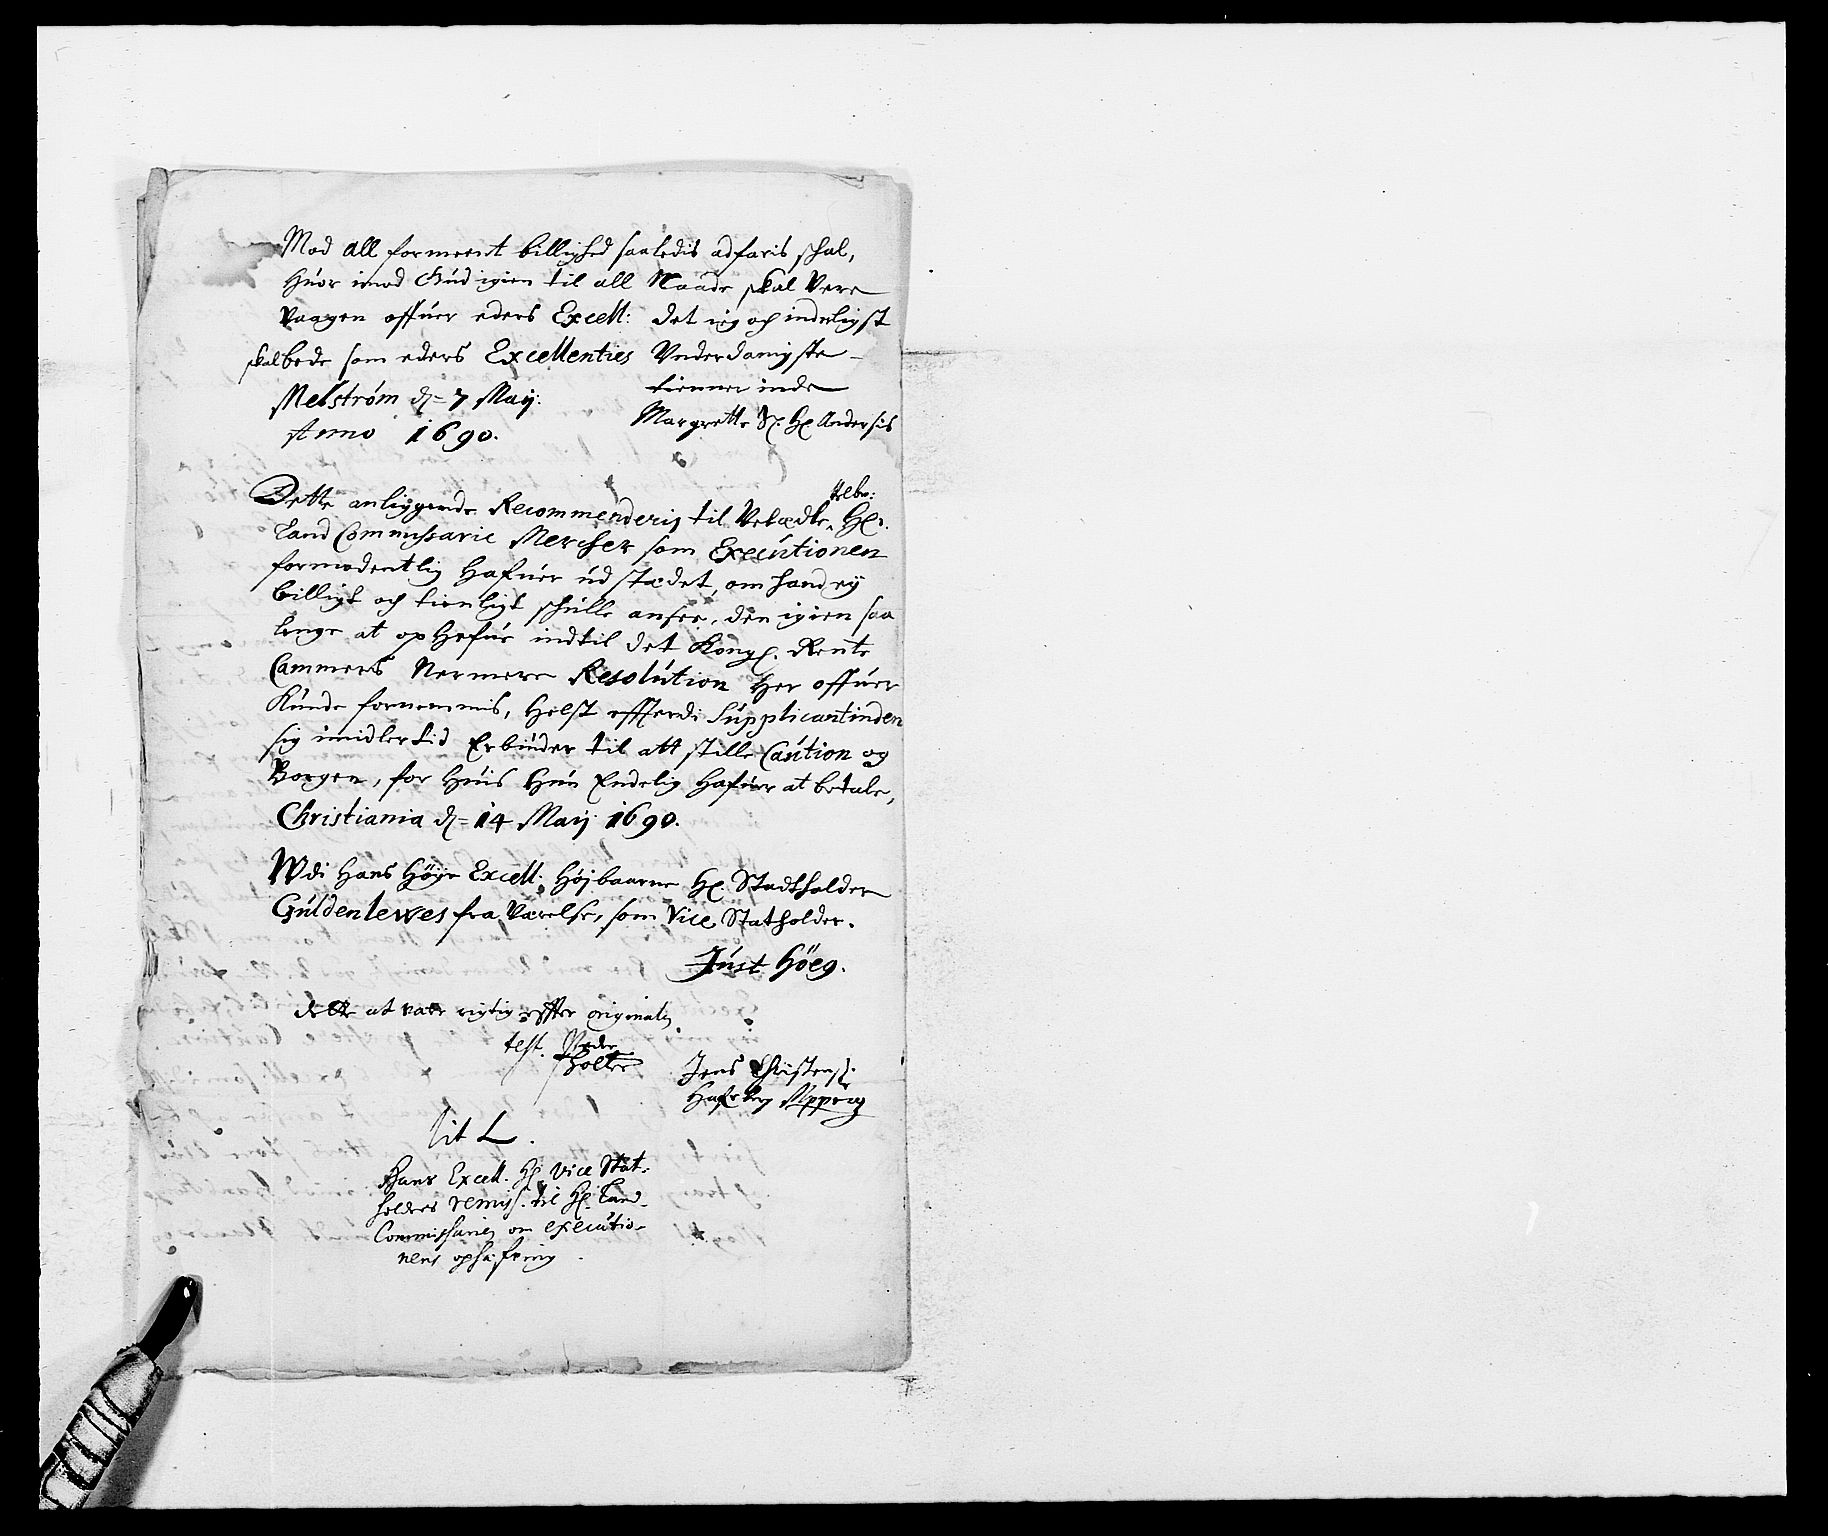 Mod all formeent billighed saaledis adfaris schal,
Huor imod Gud igien til all Naade skal Vere
Vaagen offuer eders Excell: det ieg och inderligst
skal bede som eders Excellenties Vnderdanigste
tiennerinde
Melstrøm d= 7 Maij:
Margrette S. Hr Andersis
Anno 1690.
Dette anliggende Recommenderis til Velædle Velbr: Hr.
Land Commissarie Mercher som Executionen
formodentlig Hafuer udstædet, om hand ey
billigt och tienligt schulle ansee, den igien saa
lenge at ophefue indtil det Kongl. Rente
Cammers Nermere Resolution Her offuer
Kunde fornemmis, Helst efftterdi Supplicantinden
sig imidlertid Erbiuder til att stille Caution og
Borgen, for Huis Hun Endelig Hafuer at betale,
Christiania d= 14 Maij 1690.
Wdi Hans Höye Excell: Höjbaarne Hr. Stadtholder
Güldenlewes fra Værelse, som Vice Statholder.
Just Höeg.
dette at være rigtig effter originalen
test. Peder
Holter
Jens Christens:
Lit L.
Hans Excell. Hr. Vice Stat-
holders remiss. til Hr. Land
Commissarien om executio-
nens ophäfning